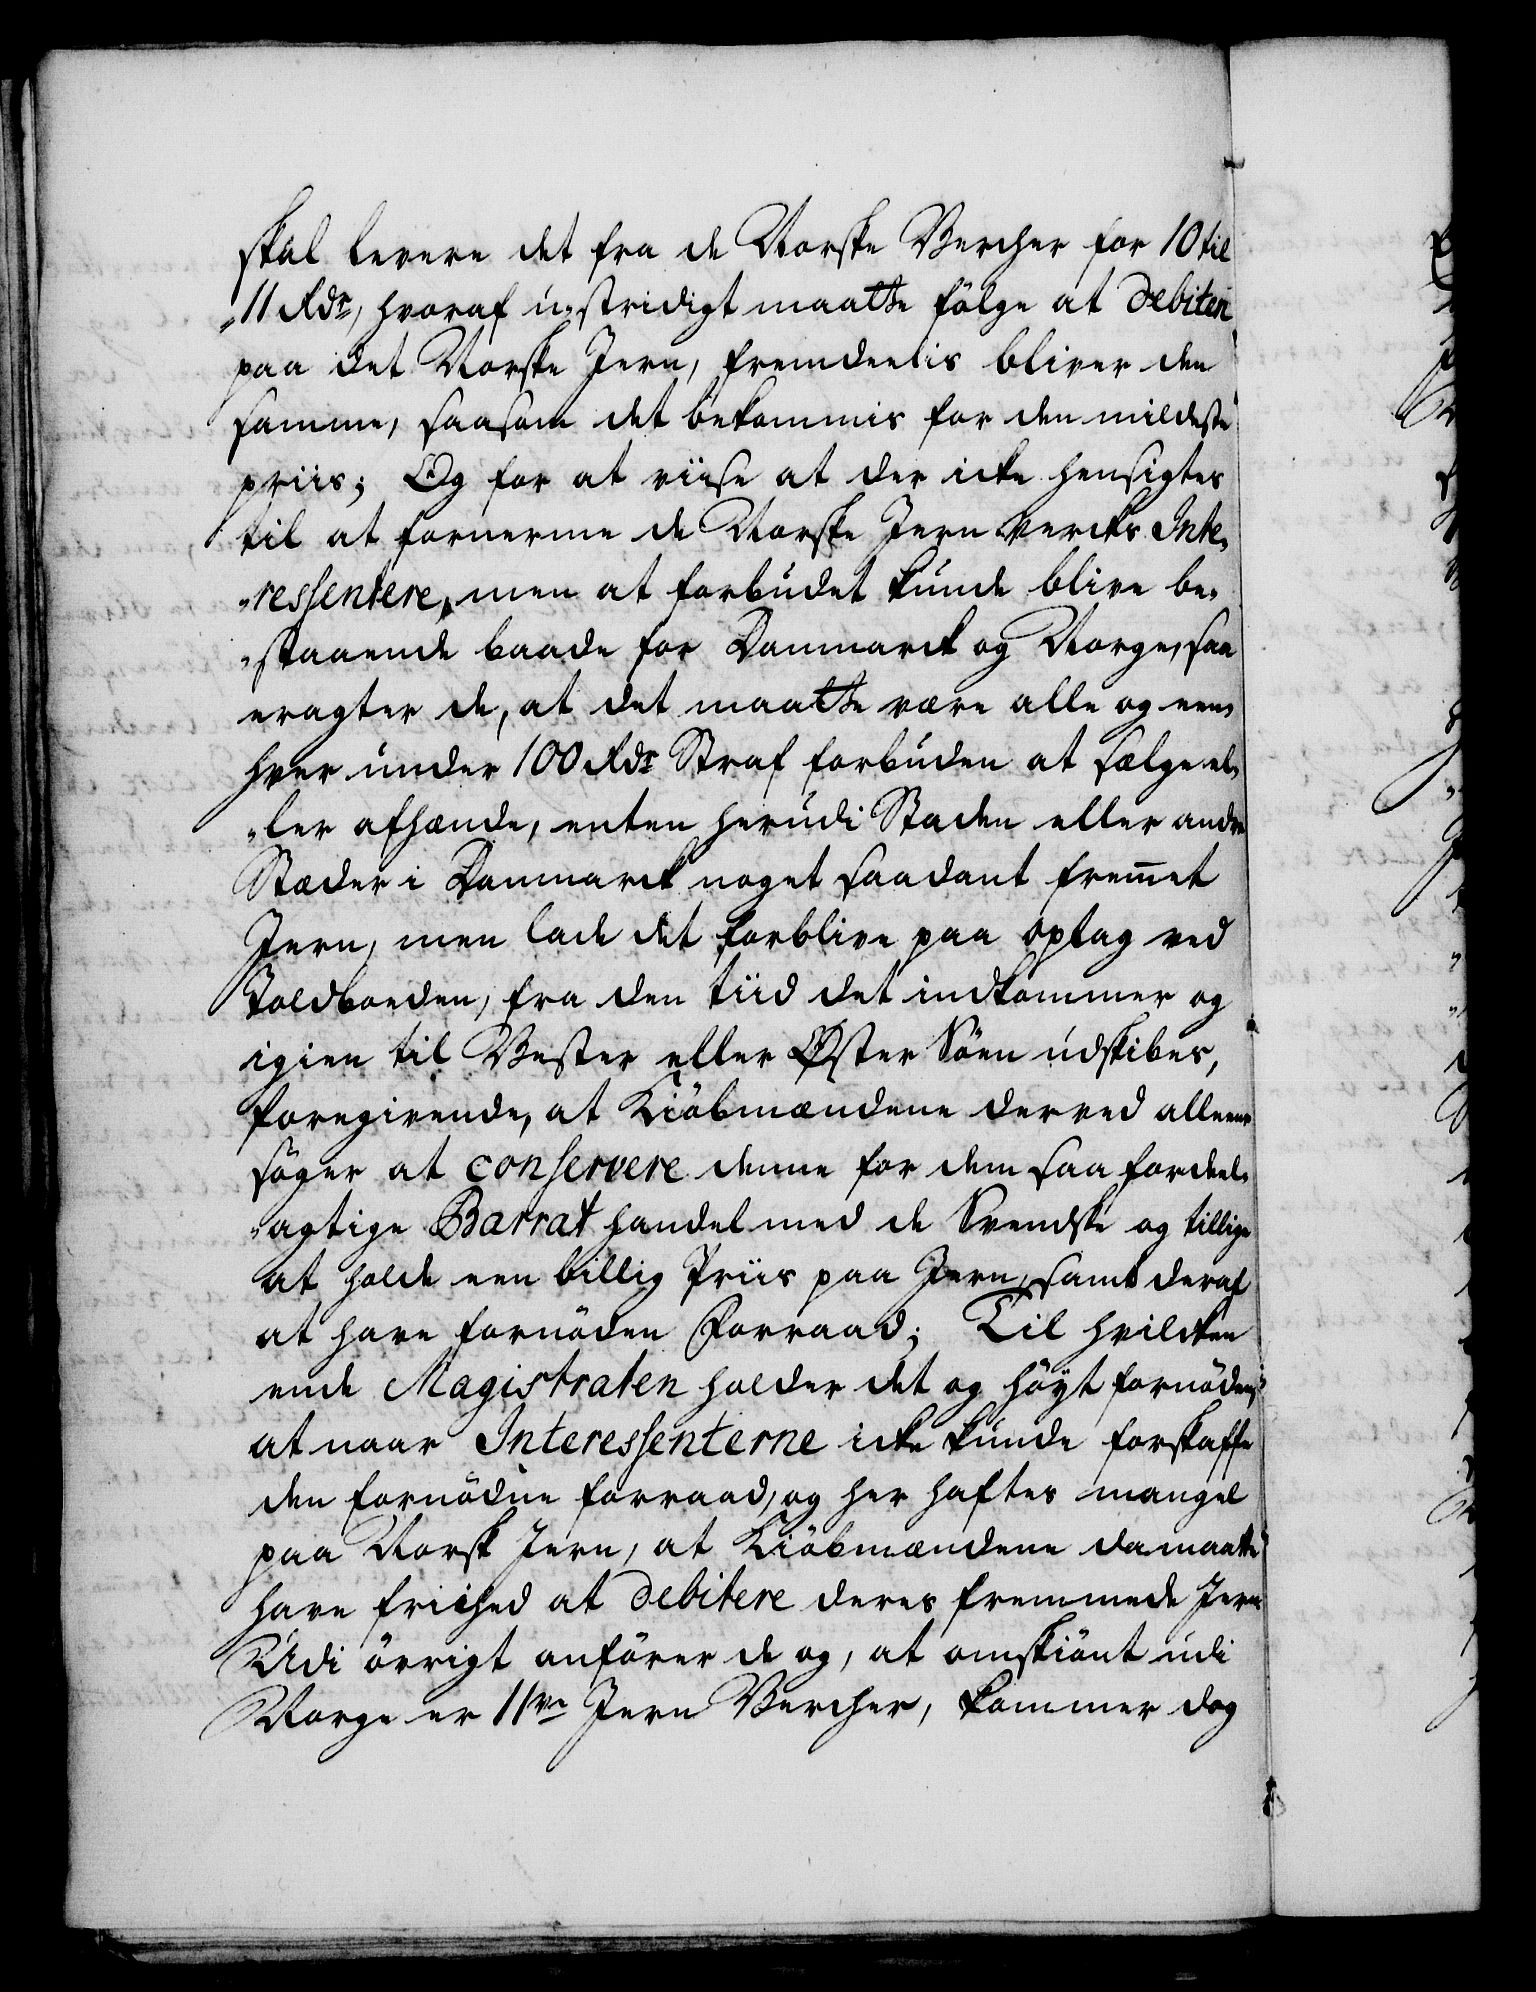 skal levere det fra de Norske Vercher for 10 til
"11 Rdr, hvoraf u-stridigt maatte fölge at Debiten
paa det Norske Jern, fremdeelis bliver den
samme, saasom det bekommis for den mildeste
priis; Og for at viise at der icke hensigtes
til at fornerme de Norske Jern Vercks Inte-
"ressentere, men at forbudet kunde blive be-
"staaende baade for Danmarck og Norge, saa
eragter de, at det maatte være alle og een-
hver under 100 Rdr Straf forbuden at sælge el-
"ler afhænde, enten herudi Staden eller andre
Stæder i Danmarck noget saadant fremet
Jern, men lade det forblive paa oplag ved
Toldboeden, fra den tiid det indkommer og
igien til Vester eller Øster Söen udskibes,
foregivende, at Kiöbmændene derved alleene
söger at conservere denne for dem saa fordeel-
"agtige Barrat handel med de Svendske og tillige
at holde een billig Priis paa Jern, samt deraf
at have fornöden Forraad; Til hvilcken
ende Magistraten holder det og höyt fornöden,
at naar Interessenterne icke kunde forskaffe
den fornödne forraad, og her haftes mangel
paa Norsk Jern, at Kiöbmændene da maatte
have friehed at debitere deres fremmede Jern
Udi övrigt anförer de og, at omskiönt udi
Norge er 11ve Jern Vercher, kommer dog